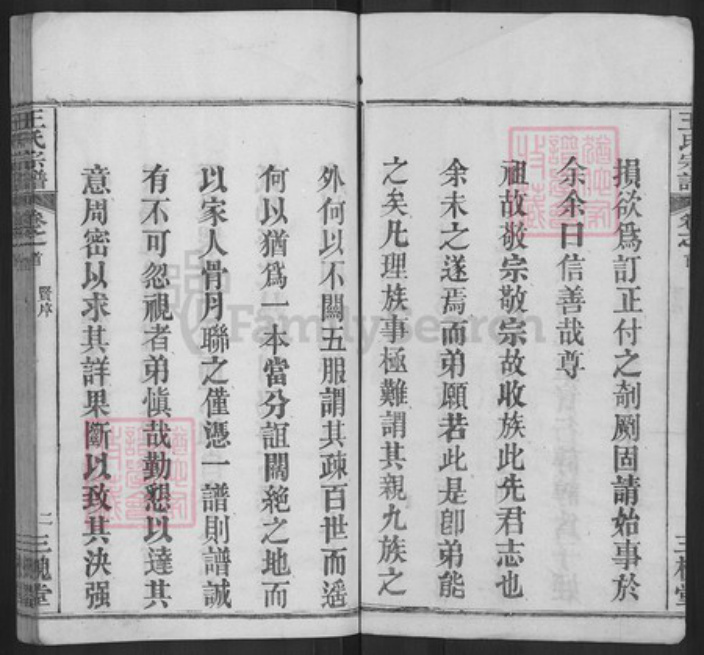 損欲爲訂正付之剞劂固請始事於
余余曰信善哉尊
祖故敬宗敬宗故收族此先君志也
余未之遂焉而弟願若此是卽弟能
之矣凡理族事極難謂其親九族之
外何以不關五服謂其疎百世而遥
何以猶爲一本當分詛闊絶之地而
以家人骨月聯之僅憑一譜則譜誠
有不可忽視者弟愼哉勤懇以達其
意周密以求其詳果斷以致其決强
王氏宗譜
卷之首
賢序
二
三槐堂
FamilySearch